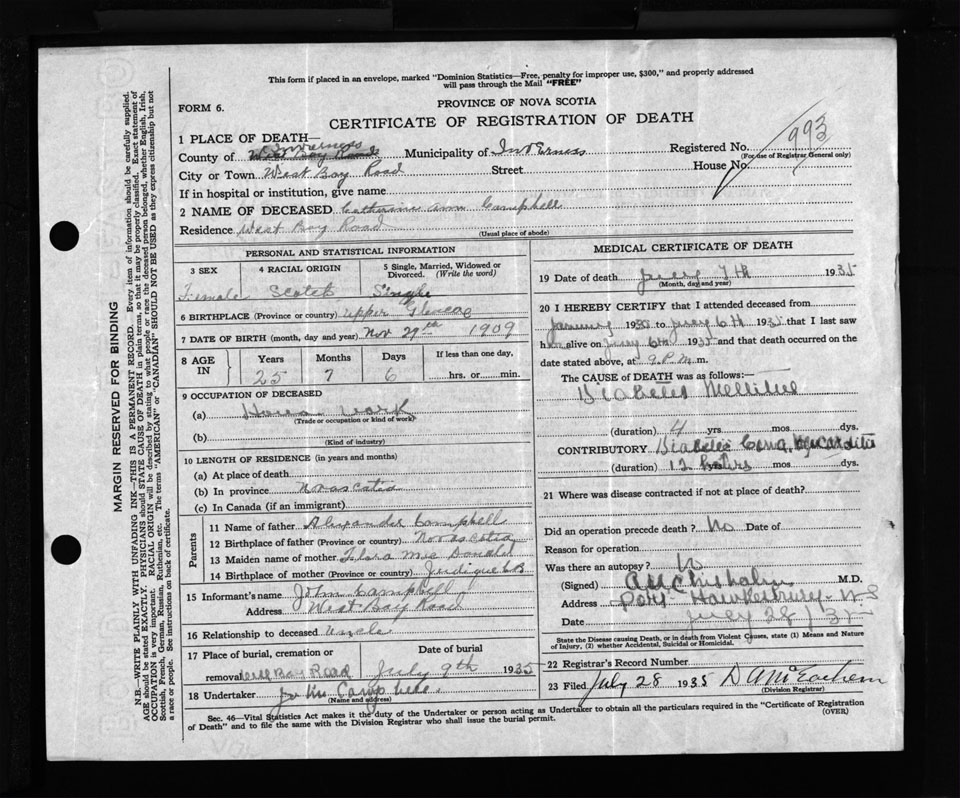 This form if placed in an envelope, marked "Dominion Statistics—Free, penalty for improper use, $300," and properly addressed
will pass through the Mail "FREE"
FORM 6.
PROVINCE OF NOVA SCOTIA
CERTIFICATE OF REGISTRATION OF DEATH
993
1 PLACE OF DEATH—
County of Inverness West Bay Road Municipality of Inverness Registered No.
(For use of Registrar General only)
City or Town West Bay Road Street House No.
If in hospital or institution, give name
2 NAME OF DECEASED Catherine Ann Campbell
Residence West Bay Road
(Usual place of abode)
PERSONAL AND STATISTICAL INFORMATION
3 SEX 4 RACIAL ORIGIN 5 Single, Married, Widowed or Divorced. (Write the word)
Female Scotch Single
6 BIRTHPLACE (Province or country) Upper Glencoe
7 DATE OF BIRTH (month, day and year) Nov 29th 1909
8 AGE IN Years Months Days If less than one day,
25 7 6 hrs. or min.
9 OCCUPATION OF DECEASED
(a) House work
(Trade or occupation or kind of work)
(b)
(Kind of industry)
10 LENGTH OF RESIDENCE (in years and months)
(a) At place of death
(b) In province Novascotia
(c) In Canada (if an immigrant)
Parents
11 Name of father Alexander Campbell
12 Birthplace of father (Province or country) Novascotia
13 Maiden name of mother Flora Mc Donald
14 Birthplace of mother (Province or country) Judique CB
15 Informant's name John Campbell
Address West Bay Road
16 Relationship to deceased Uncle
17 Place of burial, cremation or Date of burial
removal West Bay Road July 9th 1935
18 Undertaker Campbell
(Name and address)
MEDICAL CERTIFICATE OF DEATH
19 Date of death July 7th 1935
(Month, day and year)
20 I HEREBY CERTIFY that I attended deceased from
January 1930 to July 6th 1935 that I last saw
h alive on July 6th 1935 and that death occurred on the
date stated above, at 9.P.M m.
The CAUSE OF DEATH was as follows:
Diabetes Mellitus
(duration) 4 yrs mos dys.
CONTRIBUTORY Diabetic Coma, Myocarditis
(duration) 12 hours mos dys.
21 Where was disease contracted if not at place of death?
Did an operation precede death? No Date of
Reason for operation
Was there an autopsy? No
(Signed) Chisholm M.D.
Address Port Hawkesbury N S
Date July 28/35
State the Disease causing Death, or in death from Violent Causes, state (1) Means and Nature
of Injury, (2) whether Accidental, Suicidal or Homicidal.
22 Registrar's Record Number
23 Filed July 28 1935 D A McEachern
(Division Registrar)
Sec. 46—Vital Statistics Act makes it the duty of the Undertaker or person acting as Undertaker to obtain all the particulars required in the "Certificate of Registration
of Death" and to file the same with the Division Registrar who shall issue the burial permit.
(OVER)
MARGIN RESERVED FOR BINDING
N.B.—WRITE PLAINLY WITH UNFADING INK—THIS IS A PERMANENT RECORD. Every item of information should be carefully supplied.
AGE should be stated EXACTLY. PHYSICIANS should STATE CAUSE OF DEATH in plain terms, so that it may be properly classified. Exact statement of
OCCUPATION is very important. RACIAL ORIGIN will be described by stating to what people or race the deceased person belonged, whether English, Irish,
Scottish, French, German, Russian, Ruthenian, etc. The terms "AMERICAN" or "CANADIAN" SHOULD NOT BE USED as they express citizenship but not
a race or people. See instructions on back of certificate.